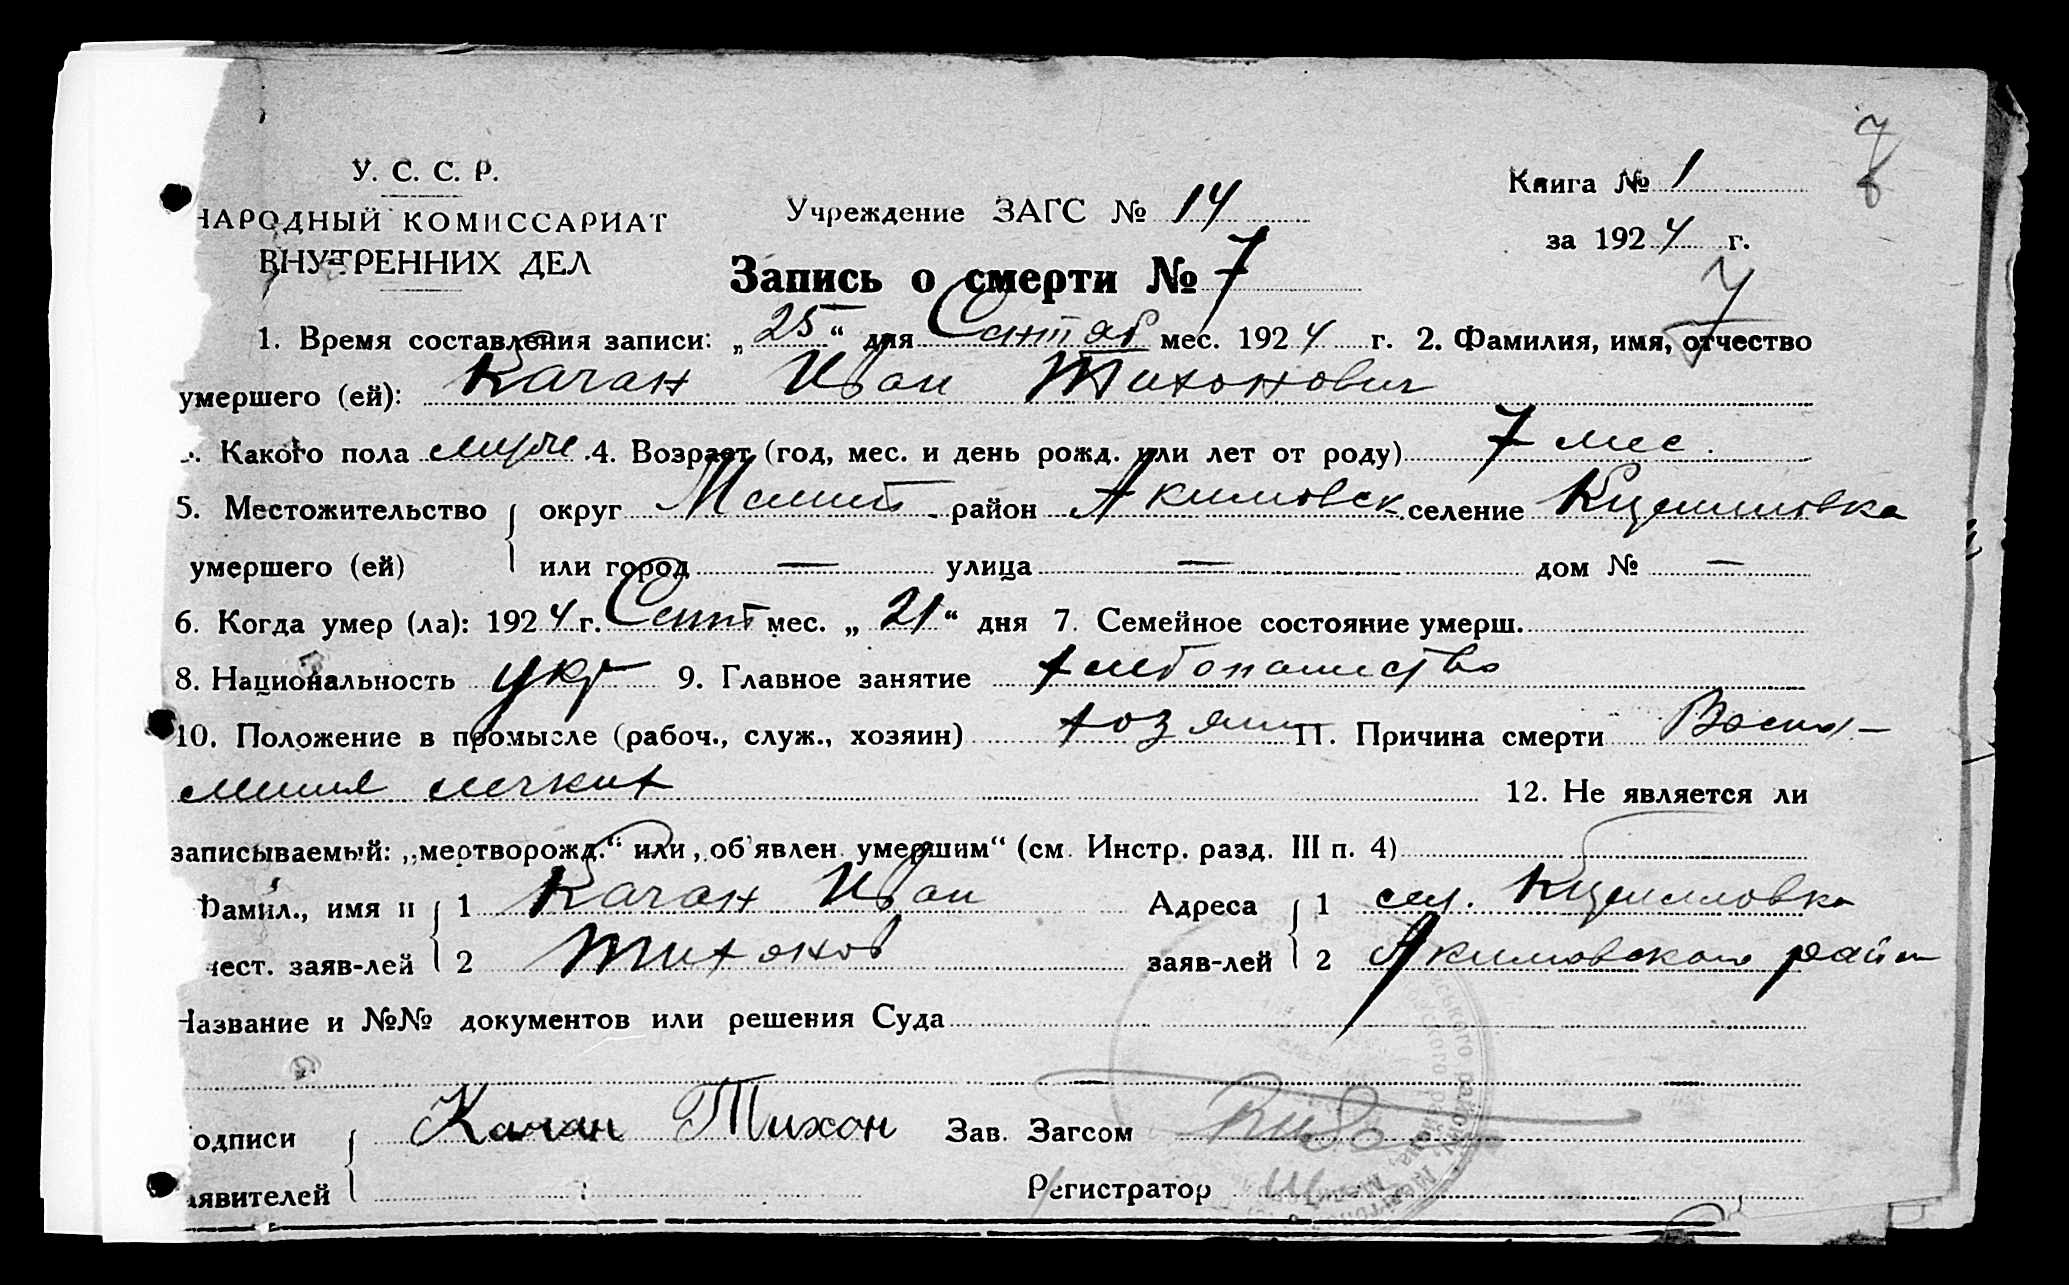 7
8
У. С. С. Р.
НАРОДНЫЙ КОМИССАРИАТ
ВНУТРЕННИХ ДЕЛ
Учреждение ЗАГС № 14
Книга № 1
за 1924 г.
Запись о смерти № 7
7
1. Время составления записи: „25“ дня Сентяб мес. 1924 г. 2. Фамилия, имя, отчество
умершего (ей): Качан Иван Тихонович
Какого пола муж. 4. Возраст (год, мес. и день рожд. или лет от роду) 7 мес.
5. Местожительство округ Мелит. район Акимовск. селение
умершего (ей) или город — улица — дом № —
6. Когда умер (ла): 1924 г. Сент мес. „21“ дня 7. Семейное состояние умерш.
8. Национальность укр 9. Главное занятие хлебопашество
10. Положение в промысле (рабоч., служ., хозяин) хозяин 11. Причина смерти Воспа-
ление легких 12. Не является ли
записываемый: „мертворожд.“ или „об'явлен умершим“ (см. Инстр. разд. III п. 4)
Фамил., имя и 1 Качан Иван Адреса 1 сел.
чест. заяв-лей 2 Тихонов заяв-лей 2 Акимовского район
Название и №№ документов или решения Суда
одписи Качан Тихон Зав. Загсом
аявителей Регистратор